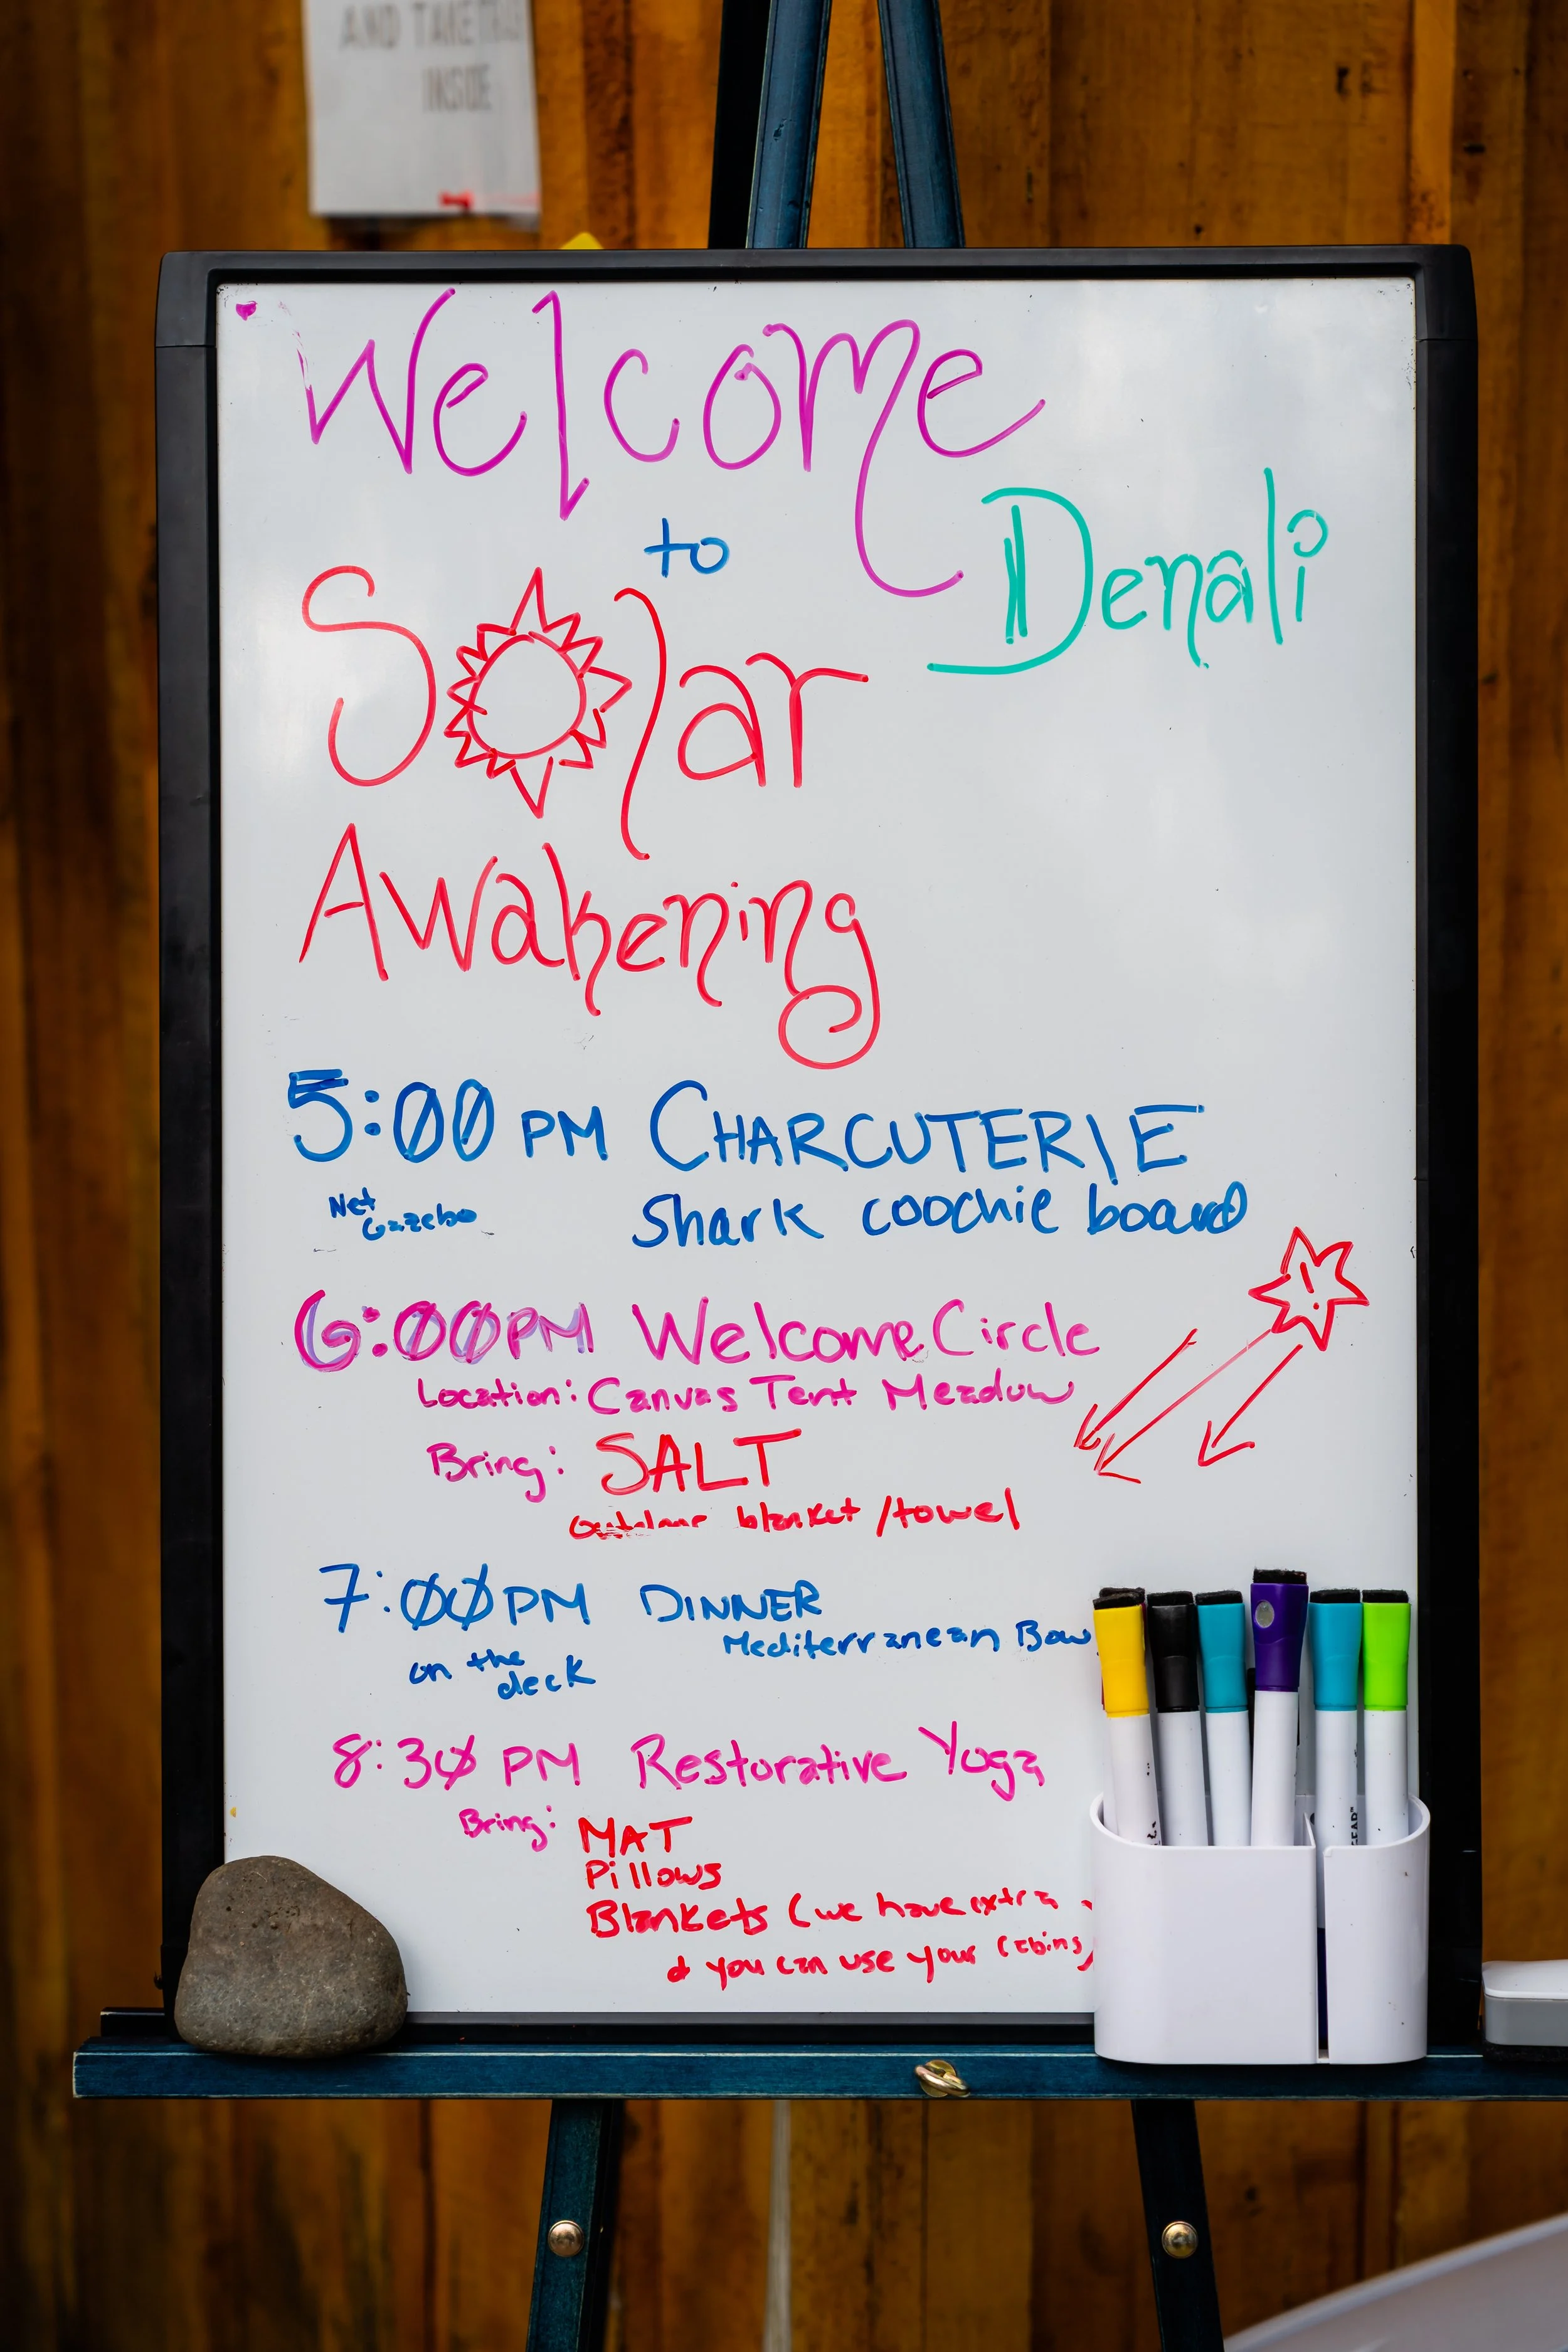 AND TAKE
INSIDE
Welcome
to
Denali
Solar
Awakening
5:00 PM CHARCUTERIE
Net Gazebo
Shark coochie board
6:00 PM Welcome Circle
Location: Canvas Tent Meadow
Bring: SALT
outdoor blanket/towel
!
7:00 PM DINNER
Mediterranean Bow
on the
deck
8:30 PM Restorative Yoga
Bring: MAT
Pillows
Blankets (we have extra
& you can use your cabins)